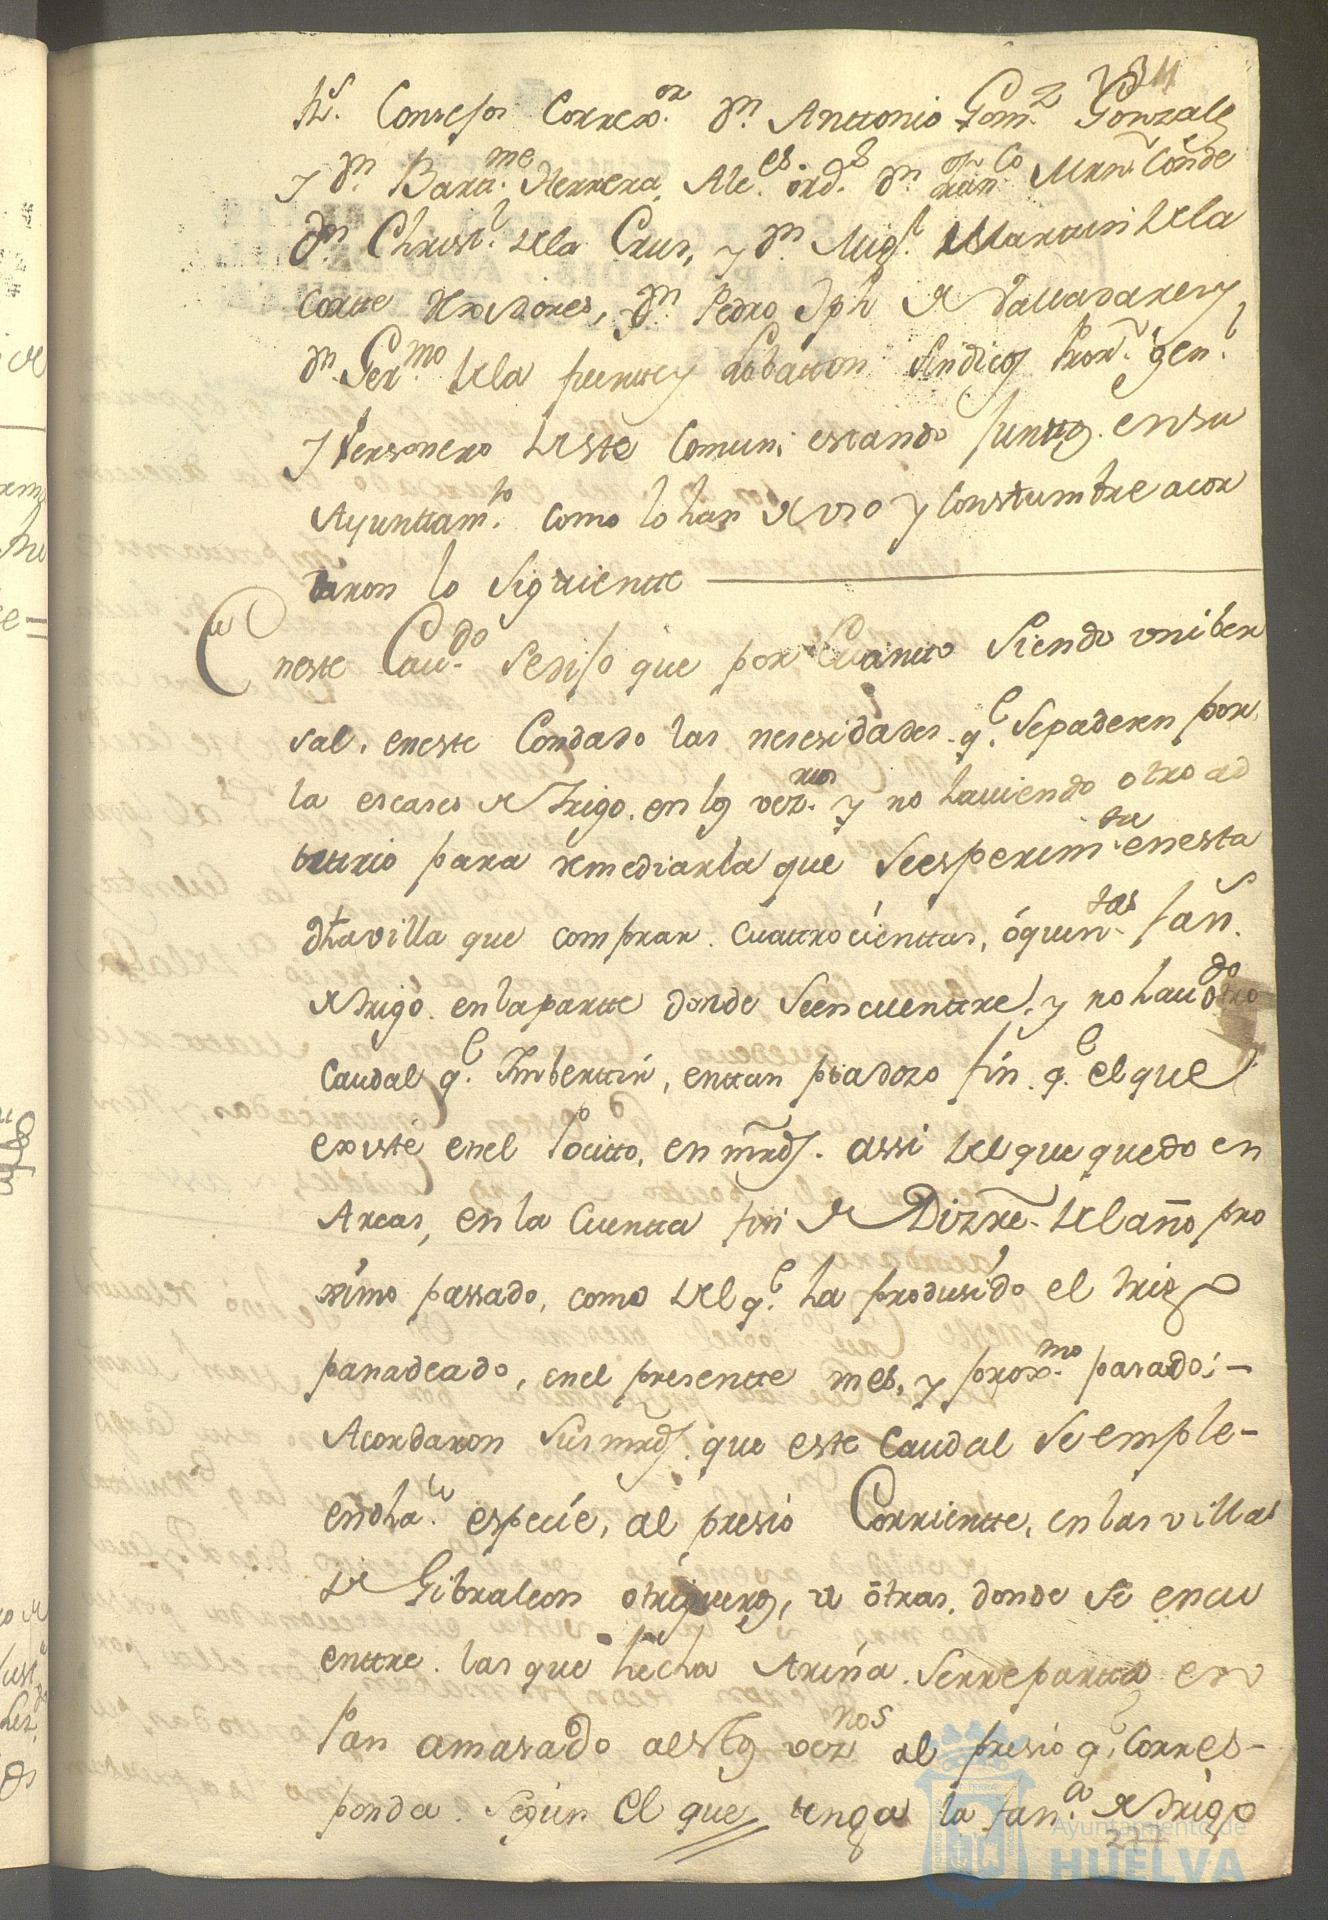 Sres. Consejos Correxor. Dn. Anttonio Gomz Gonzalz
y Dn. Barme. Herrera Alces. ords. Dn. Franco Mrn. Conde
Dn. Christl. de la Crus, y Dn. Migl. Martin de la
Cortte Rexidores, Dn. Pedro Jph de Valladares y
Dn. Germo. de la fuentte y Lobatton Sindicos Pror. genl.
y Personero deste Comun, estando Juntos en su
Ayunttamto. como lo han de uso y Constumbre acor
daron lo siguientte
Eneste Caudo. se diso que por Cuantto siendo uniber
sal, en este Condado las nesesidades qe. se padesen por
la escases de Trigo en los vezros. y no haviendo otro ad
bitrio para remediarla que se esperimta en esta
dha villa que comprar cuattrocienttas, ó quintas fañ.
de trigo en la partte donde se encuenttre, y no haudo otro
Caudal qe. Imberttir, en ttan piadozo fin qe. el que
existe en el Pocitto, en mrds. assi del que quedo en
Arcas, en la Cuentta fin de Dizre. del año pro
ximo passado, como del qe. ha produsido el trigo
panadeado, en el presentte mes, y proxmo. pasado;
Acordaron sus mrds. que este Caudal se emple-
en dha. especie, al presio Corrientte, en las villas
de Gibraleon o trigueros, u otras, donde se encu
enttre. las que hecha Arina se rrepartta en
Pan amasado a estos veznos al presio qe. Corres-
ponda segun el que tenga la fana. de trigo
277
Ayuntamiento de
HUELVA